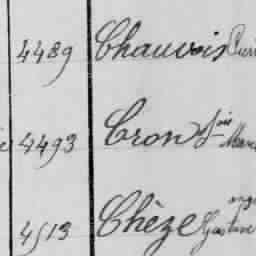 4489 Chauvois
4493 Cron
4513 Chèze Gustave